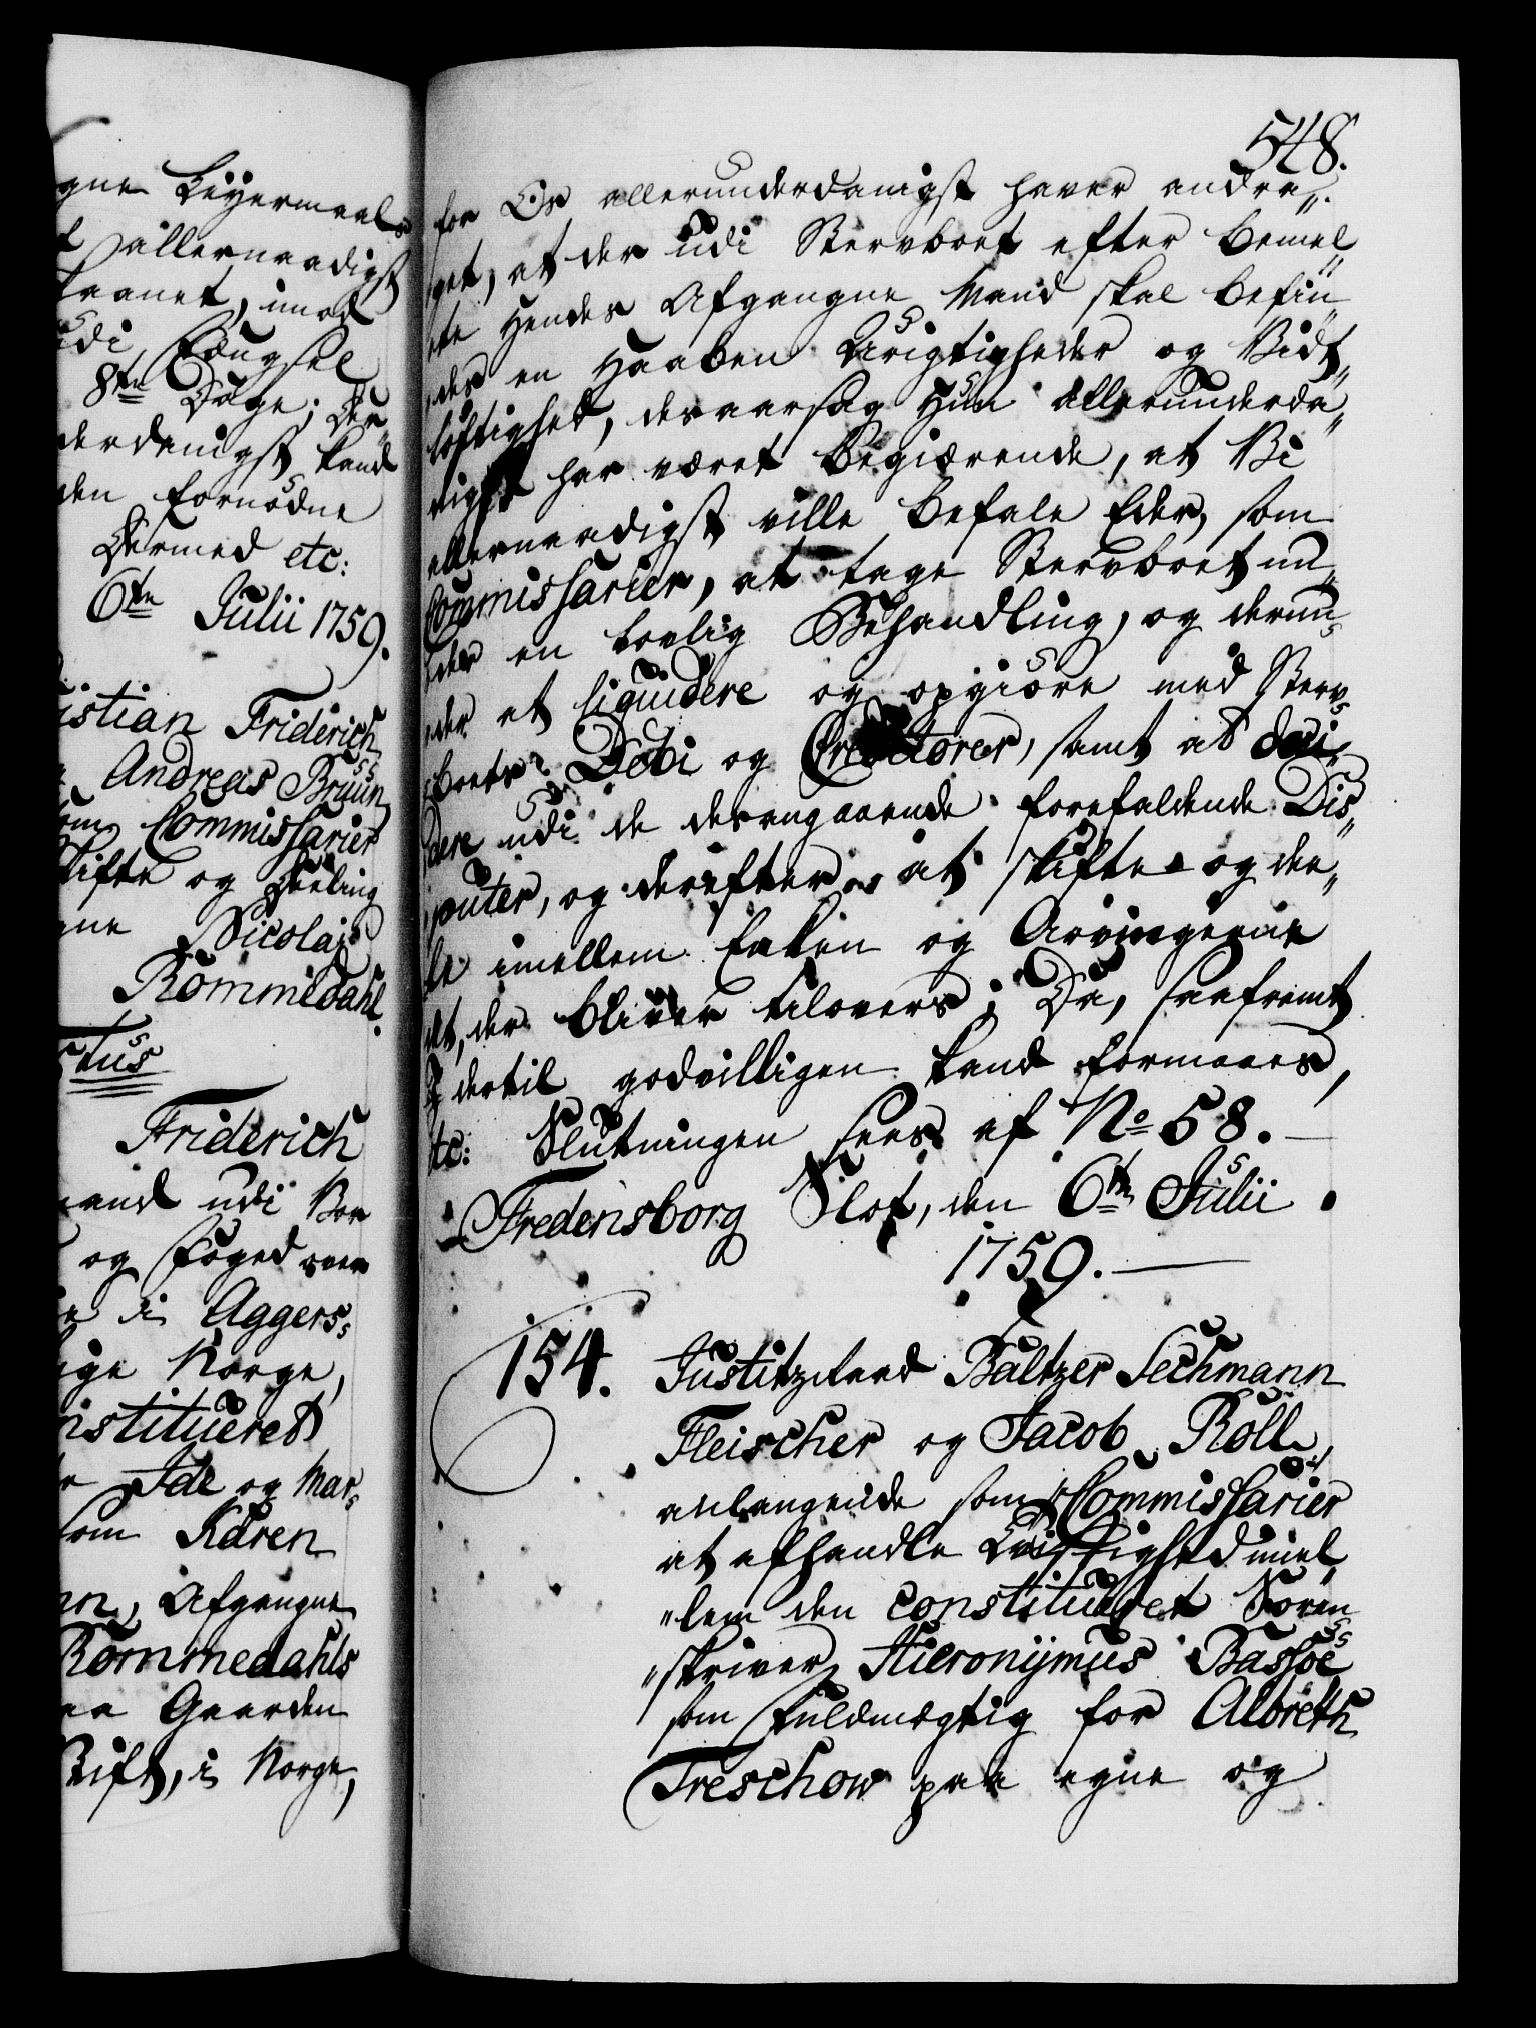 gne Leyermaals
allernaadigst
imod
udi Fængsel
8te Dage; Der
derdanigst kand
den fornødne
Dermed etc:
6te Julii 1759.
istian Friderich
Andreas Bruun
som Commissarier
kifte og Deeling
gne Nicolai
Rommedahl.
Friderich
mand udi Vor
og Foged over
i Aggers-
ige Norge,
nstitueret
Ide og Mar-
som Karen
nn, Afgangne
Rommedahls
aa Gaarden
Stift, i Norge,
548.
for Os allerunderdanigst haver andra-
get, at der udi Stervboet efter bemel-
te Hendes Afgangne Mand skal befin-
des en Haaben Urigtigheder og Vidt-
løftighed, desaarsag Hun allerunderda-
nigst har været begiærende, at Vi
allernaadigst ville befale Eder, som
Commissarier, at tage Stervboet un-
der en lovlig Behandling, og derun-
der at liquidere og opgiøre med Sterv-
boets Debi og Creditorer, samt at deci-
dere udi de desangaaende forefaldende Dis-
puter, og derefter at skifte og dee-
le imellem Enken og Arvingerne
det, der bliver tilovers; Da, saafremt
I dertil godvilligen kand formaaes,
etc: Slutningen sees af No 58.
Fredensborg Slot, den 6te Julii
1759.
154. Justitzraad Baltzer Sechmann
Fleischer og Jacob Roll,
anlangende som Commissarier
at afhandle Tvistighed imel-
lem den constitueret Soren-
skriver Hieronijmus Bassøe
som Fuldmægtig for Albreth
Treschow paa egne og